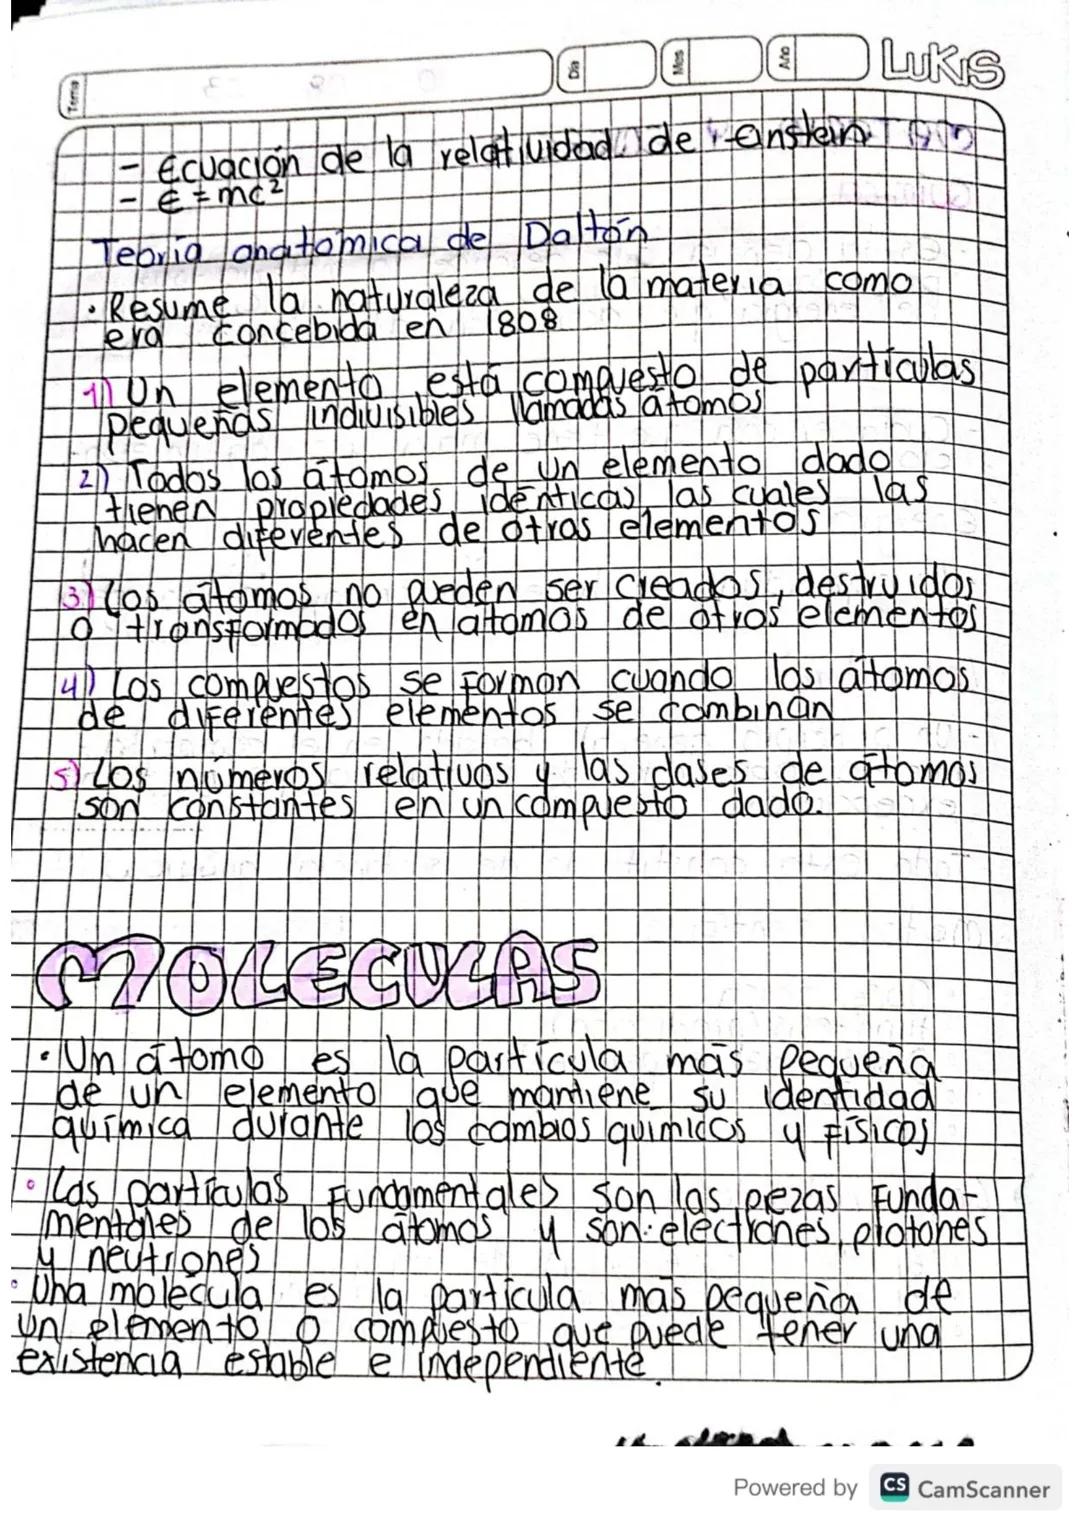 Tema
Día
Mes
Año
LUKIS
- Ecuación de la relatividad de einstein
- E = mc²
Teoría anatómica de Daltón
· Resume la naturaleza de la materia como
era concebida en 1808
1) Un elemento está compuesto de partículas
pequeñas indivisibles llamadas átomos
2) Todos los átomos de un elemento dado
tienen propiedades idénticas, las cuales las
hacen diferentes de otros elementos
3) Los átomos no pueden ser creados, destruidos
o transformados en átomos de otros elementos
4) Los compuestos se forman cuando los átomos
de diferentes elementos se combinan
5) Los números relativos y las clases de átomos
son constantes en un compuesto dado.
MOLECULAS
· Un átomo es la partícula más pequeña
de un elemento que mantiene su identidad
química durante los cambios químicos y físicos
· Las partículas fundamentales son las piezas funda-
mentales de los átomos y son: electrones, protones
y neutrones
· Una molécula es la partícula más pequeña de
un elemento o compuesto que puede tener una
existencia estable e independiente.
Powered by CS CamScanner